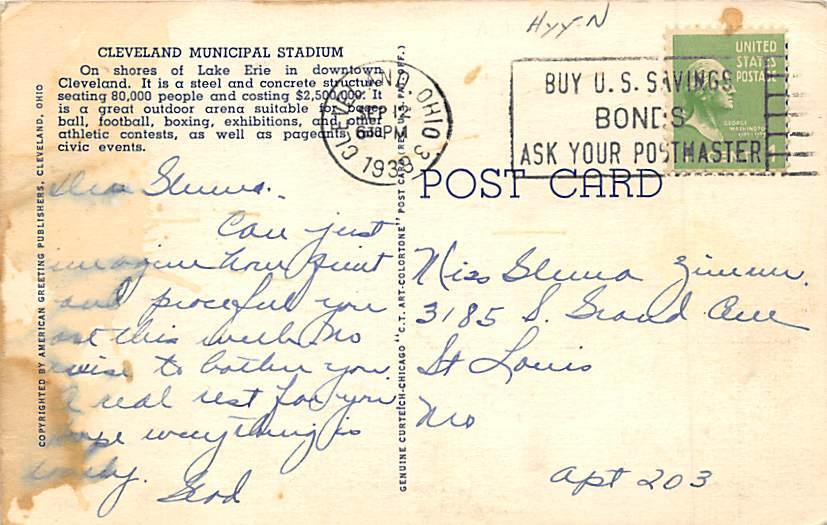 Hyy-N
CLEVELAND MUNICIPAL STADIUM
On shores of Lake Erie in downtown
Cleveland. It is a steel and concrete structure
seating 80,000 people and costing $2,500,000. It
is a great outdoor arena suitable for base-
ball, football, boxing, exhibitions, and other
athletic contests, as well as pageants and
civic events.
CLEVELAND, OHIO
SEP 12
630PM
1939
BUY U.S. SAVINGS
BONDS
ASK YOUR POSTMASTER
UNITED
STATES
POSTAGE
GEORGE
WASHINGTON
POST CARD
COPYRIGHTED BY AMERICAN GREETING PUBLISHERS, CLEVELAND, OHIO
GENUINE CURTEICH-CHICAGO "C.T. ART-COLORTONE" POST CARD (REG. U.S. PAT. OFF.)
Dear Glenna.
Can just
imagine how quiet
and peaceful you
are this week No
noise to bother you.
A real rest for you
hope everything is
Gerd
Miss Glenna Zimm.
3185 S. Grand Ave
St Louis
Mo
Apt 203